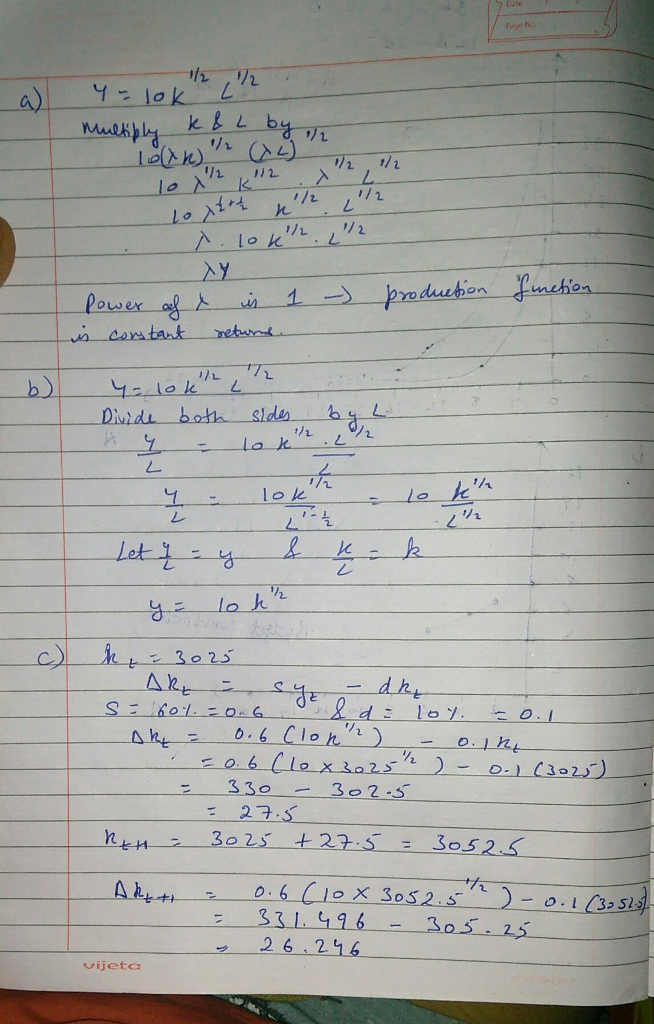 Date
Page No.
a) Y = 10K^1/2 L^1/2
Multiply K & L by
10(λK)^1/2 (λL)^1/2
10 λ^1/2 K^1/2 . λ^1/2 L^1/2
10 λ^1/2+1/2 K^1/2 . L^1/2
λ . 10K^1/2 . L^1/2
λY
Power of λ is 1 → production function
is constant returns.
b) Y = 10K^1/2 L^1/2
Divide both sides by L
Y/L = 10K^1/2 . L^1/2 / L
Y/L = 10K^1/2 / L^1-1/2 = 10 K^1/2 / L^1/2
Let Y/L = y & K/L = k
y = 10k^1/2
c) k_t = 3025
Δk_t = sy_t - dk_t
S = 60% = 0.6 & d = 10% = 0.1
Δk_t = 0.6 (10k^1/2) - 0.1k_t
= 0.6 (10 × 3025^1/2) - 0.1 (3025)
= 330 - 302.5
= 27.5
k_t+1 = 3025 + 27.5 = 3052.5
Δk_t+1 = 0.6 (10 × 3052.5^1/2) - 0.1 (3052.5)
= 331.496 - 305.25
= 26.246
vijeta